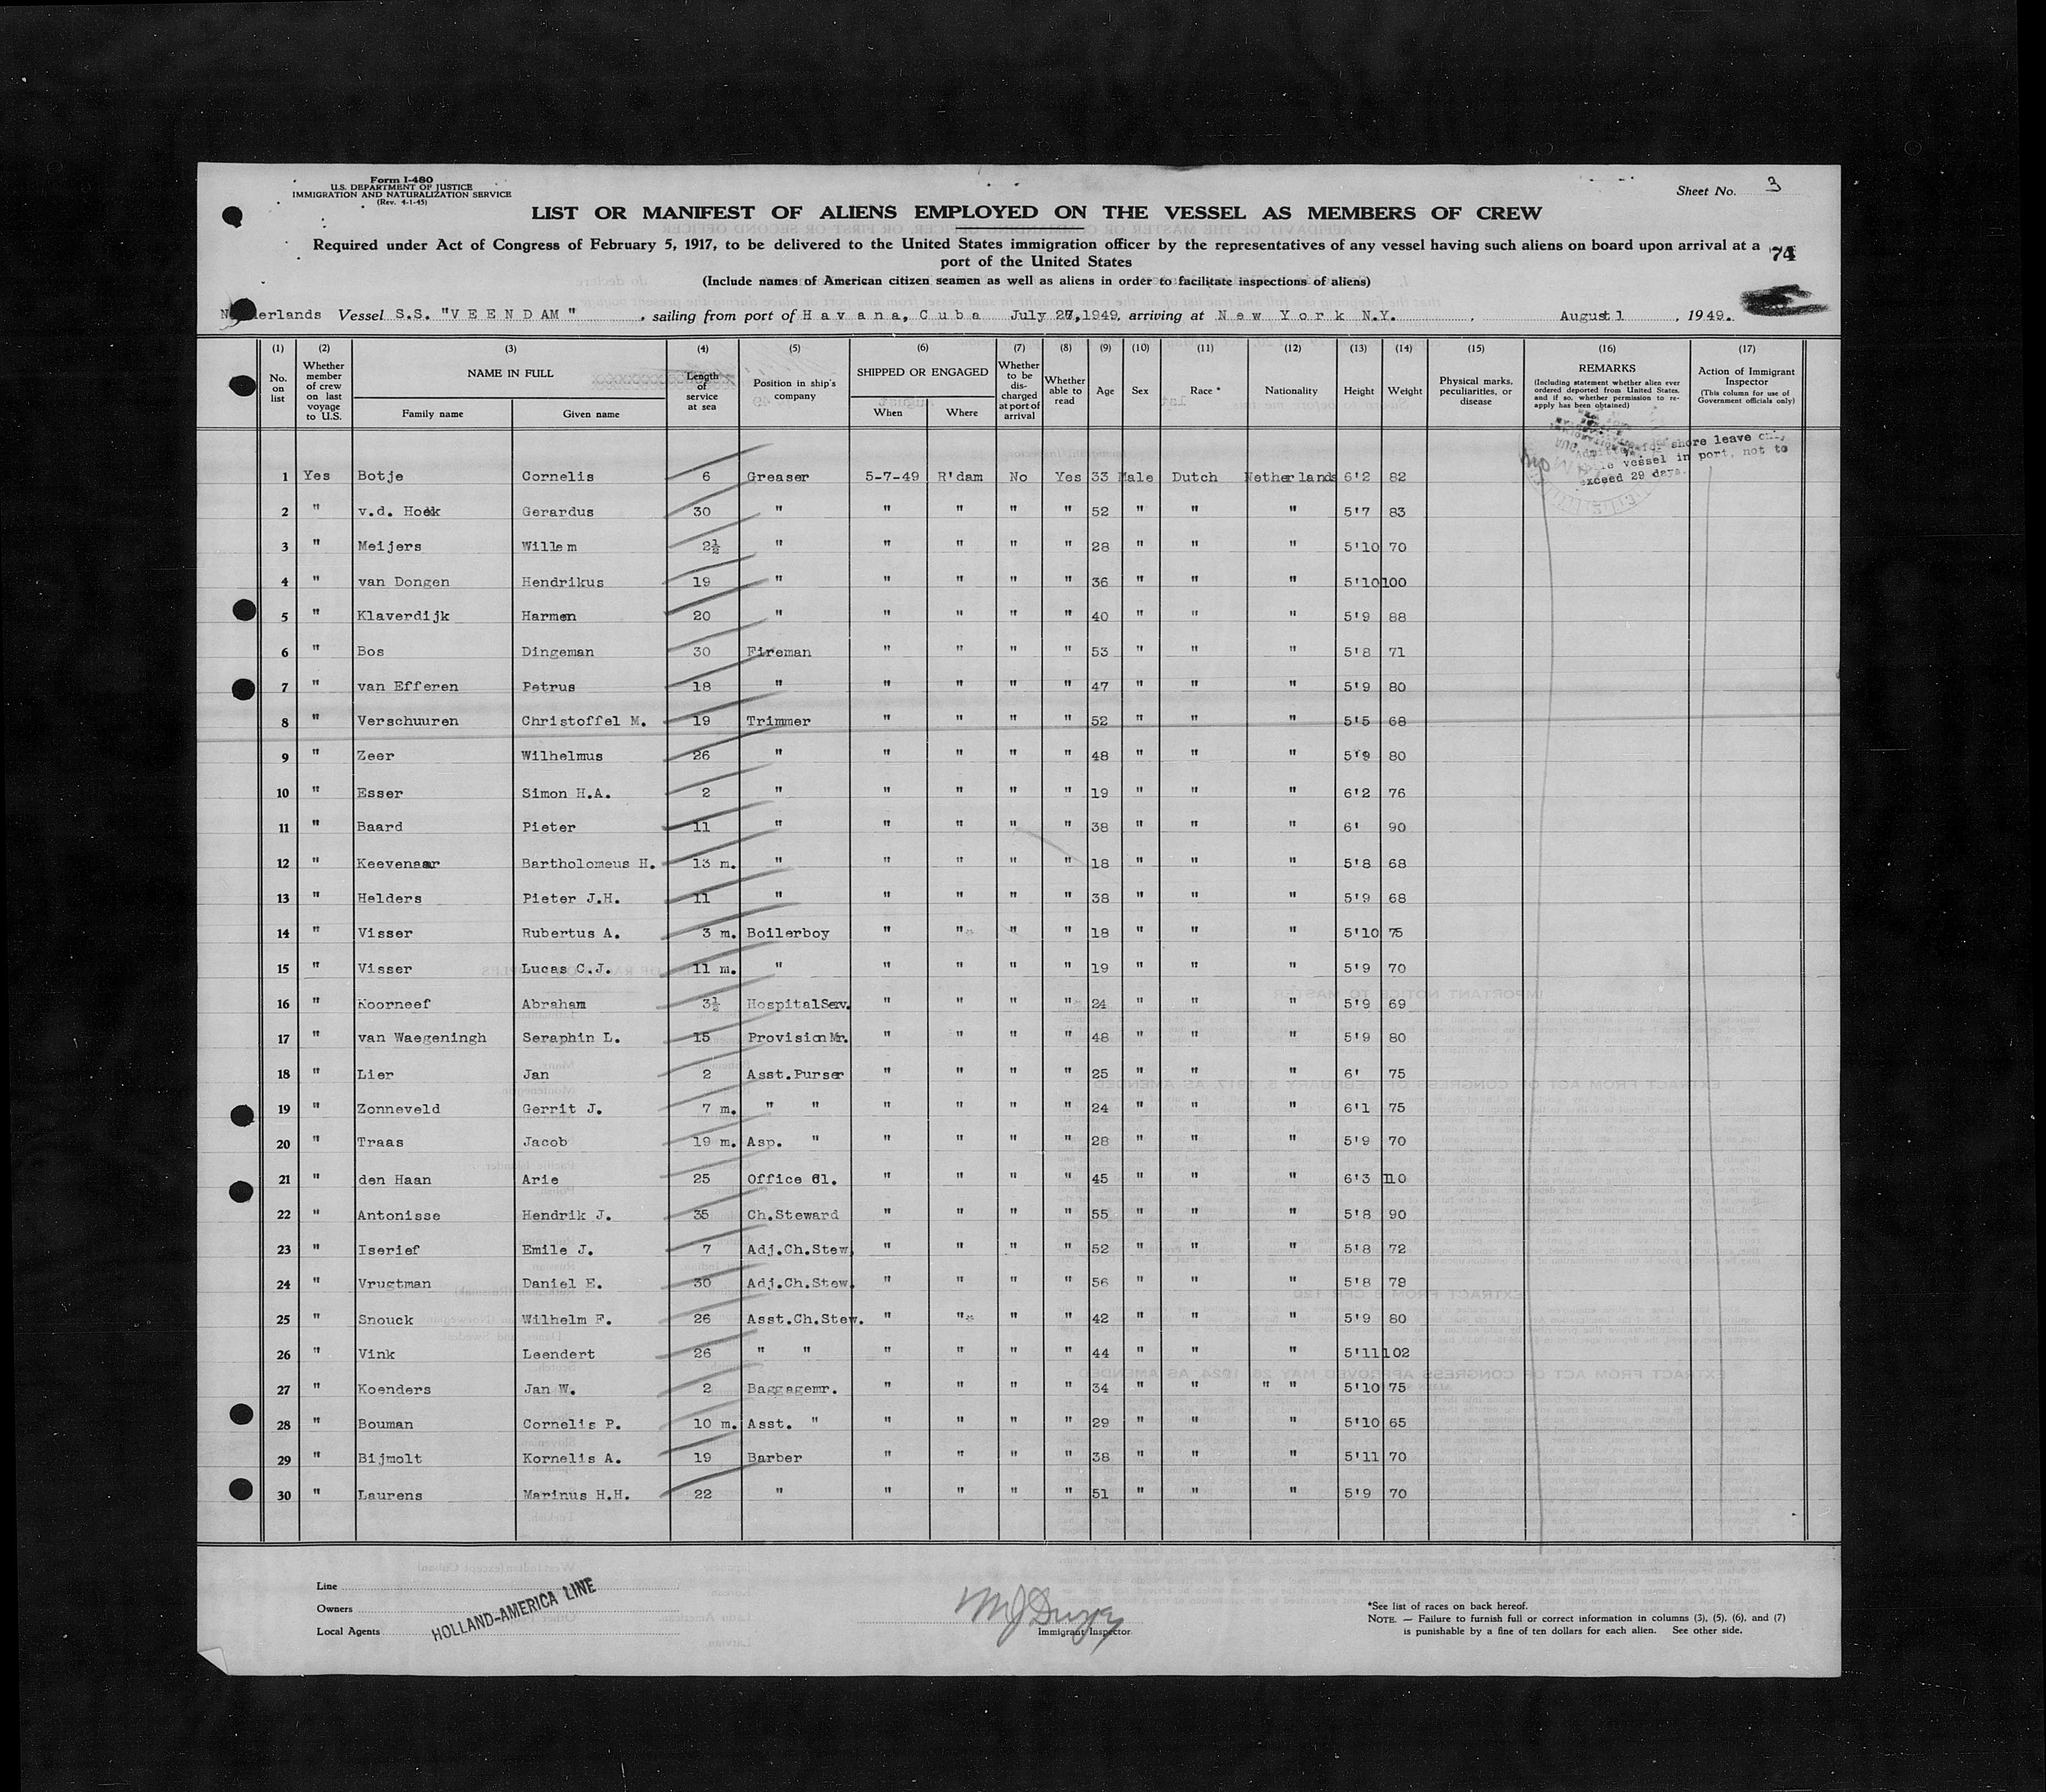 Form I-480
U.S. DEPARTMENT OF JUSTICE
IMMIGRATION AND NATURALIZATION SERVICE
(Rev. 4-1-45)
Sheet No. 3
LIST OR MANIFEST OF ALIENS EMPLOYED ON THE VESSEL AS MEMBERS OF CREW
Required under Act of Congress of February 5, 1917, to be delivered to the United States immigration officer by the representatives of any vessel having such aliens on board upon arrival at a
port of the United States
74
(Include names of American citizen seamen as well as aliens in order to facilitate inspections of aliens)
Vessel S.S. "VEENDAM", sailing from port of Havana, Cuba July 1949, arriving at New York N.Y. August 1, 1949.
(1) (2) (3) (4) (5) (6) (7) (8) (9) (10) (11) (12) (13) (14) (15) (16) (17)
No. on list Whether member of crew on last voyage to U.S. NAME IN FULL Family name Given name Length of service at sea Position in ship's company SHIPPED OR ENGAGED When Where Whether to be discharged at port of arrival Whether able to read Age Sex Race * Nationality Height Weight Physical marks, peculiarities, or disease REMARKS (Including statement whether alien ever ordered deported from United States, and if so, whether permission to re-apply has been obtained) Action of Immigrant Inspector (This column for use of Government officials only)
shore leave only
vessel in port, not to
exceed 29 days.
1 Yes Botje Cornelis 6 Greaser 5-7-49 R'dam No Yes 33 Male Dutch Netherlands 6'2 82
2 " v.d. Hoek Gerardus 30 " " " " " 52 " " " 5'7 83
3 " Meijers Willem 2½ " " " " " 28 " " " 5'10 70
4 " van Dongen Hendrikus 19 " " " " " 36 " " " 5'10 100
5 " Klaverdijk Harmen 20 " " " " " 40 " " " 5'9 88
6 " Bos Dingeman 30 Fireman " " " " 53 " " " 5'8 71
7 " van Efferen Petrus 18 " " " " " 47 " " " 5'9 80
8 " Verschuuren Christoffel M. 19 Trimmer " " " " 52 " " " 5'5 68
9 " Zeer Wilhelmus 26 " " " " " 48 " " " 5'9 80
10 " Esser Simon H.A. 2 " " " " " 19 " " " 6'2 76
11 " Baard Pieter 11 " " " " " 38 " " " 6' 90
12 " Keevenaar Bartholomeus H. 13 m. " " " " " 18 " " " 5'8 68
13 " Helders Pieter J.H. 11 " " " " " 38 " " " 5'9 68
14 " Visser Rubertus A. 3 m. Boilerboy " " " " 18 " " " 5'10 75
15 " Visser Lucas C.J. 11 m. " " " " " 19 " " " 5'9 70
16 " Koorneef Abraham 3½ HospitalServ. " " " " 24 " " " 5'9 69
17 " van Waegeningh Seraphin L. 15 ProvisionMr. " " " " 48 " " " 5'9 80
18 " Lier Jan 2 Asst.Purser " " " " 25 " " " 6' 75
19 " Zonneveld Gerrit J. 7 m. " " " " " " 24 " " " 6'1 75
20 " Traas Jacob 19 m. Asp. " " " " " 28 " " " 5'9 70
21 " den Haan Arie 25 Office Cl. " " " " 45 " " " 6'3 110
22 " Antonisse Hendrik J. 35 Ch.Steward " " " " 55 " " " 5'8 90
23 " Iserief Emile J. 7 Adj.Ch.Stew. " " " " 52 " " " 5'8 72
24 " Vrugtman Daniel E. 30 Adj.Ch.Stew. " " " " 56 " " " 5'8 79
25 " Snouck Wilhelm F. 26 Asst.Ch.Stew. " " " " 42 " " " 5'9 80
26 " Vink Leendert 26 " " " " " " 44 " " " 5'11 102
27 " Koenders Jan W. 2 Baggagemr. " " " " 34 " " " " 5'10 75
28 " Bouman Cornelis P. 10 m. Asst. " " " " " 29 " " " 5'10 65
29 " Bijmolt Kornelis A. 19 Barber " " " " 38 " " " 5'11 70
30 " Laurens Marinus H.H. 22 " " " " " 51 " " " 5'9 70
Line
Owners
Local Agents
HOLLAND-AMERICA LINE
Immigrant Inspector
*See list of races on back hereof.
NOTE. — Failure to furnish full or correct information in columns (3), (5), (6), and (7)
is punishable by a fine of ten dollars for each alien. See other side.